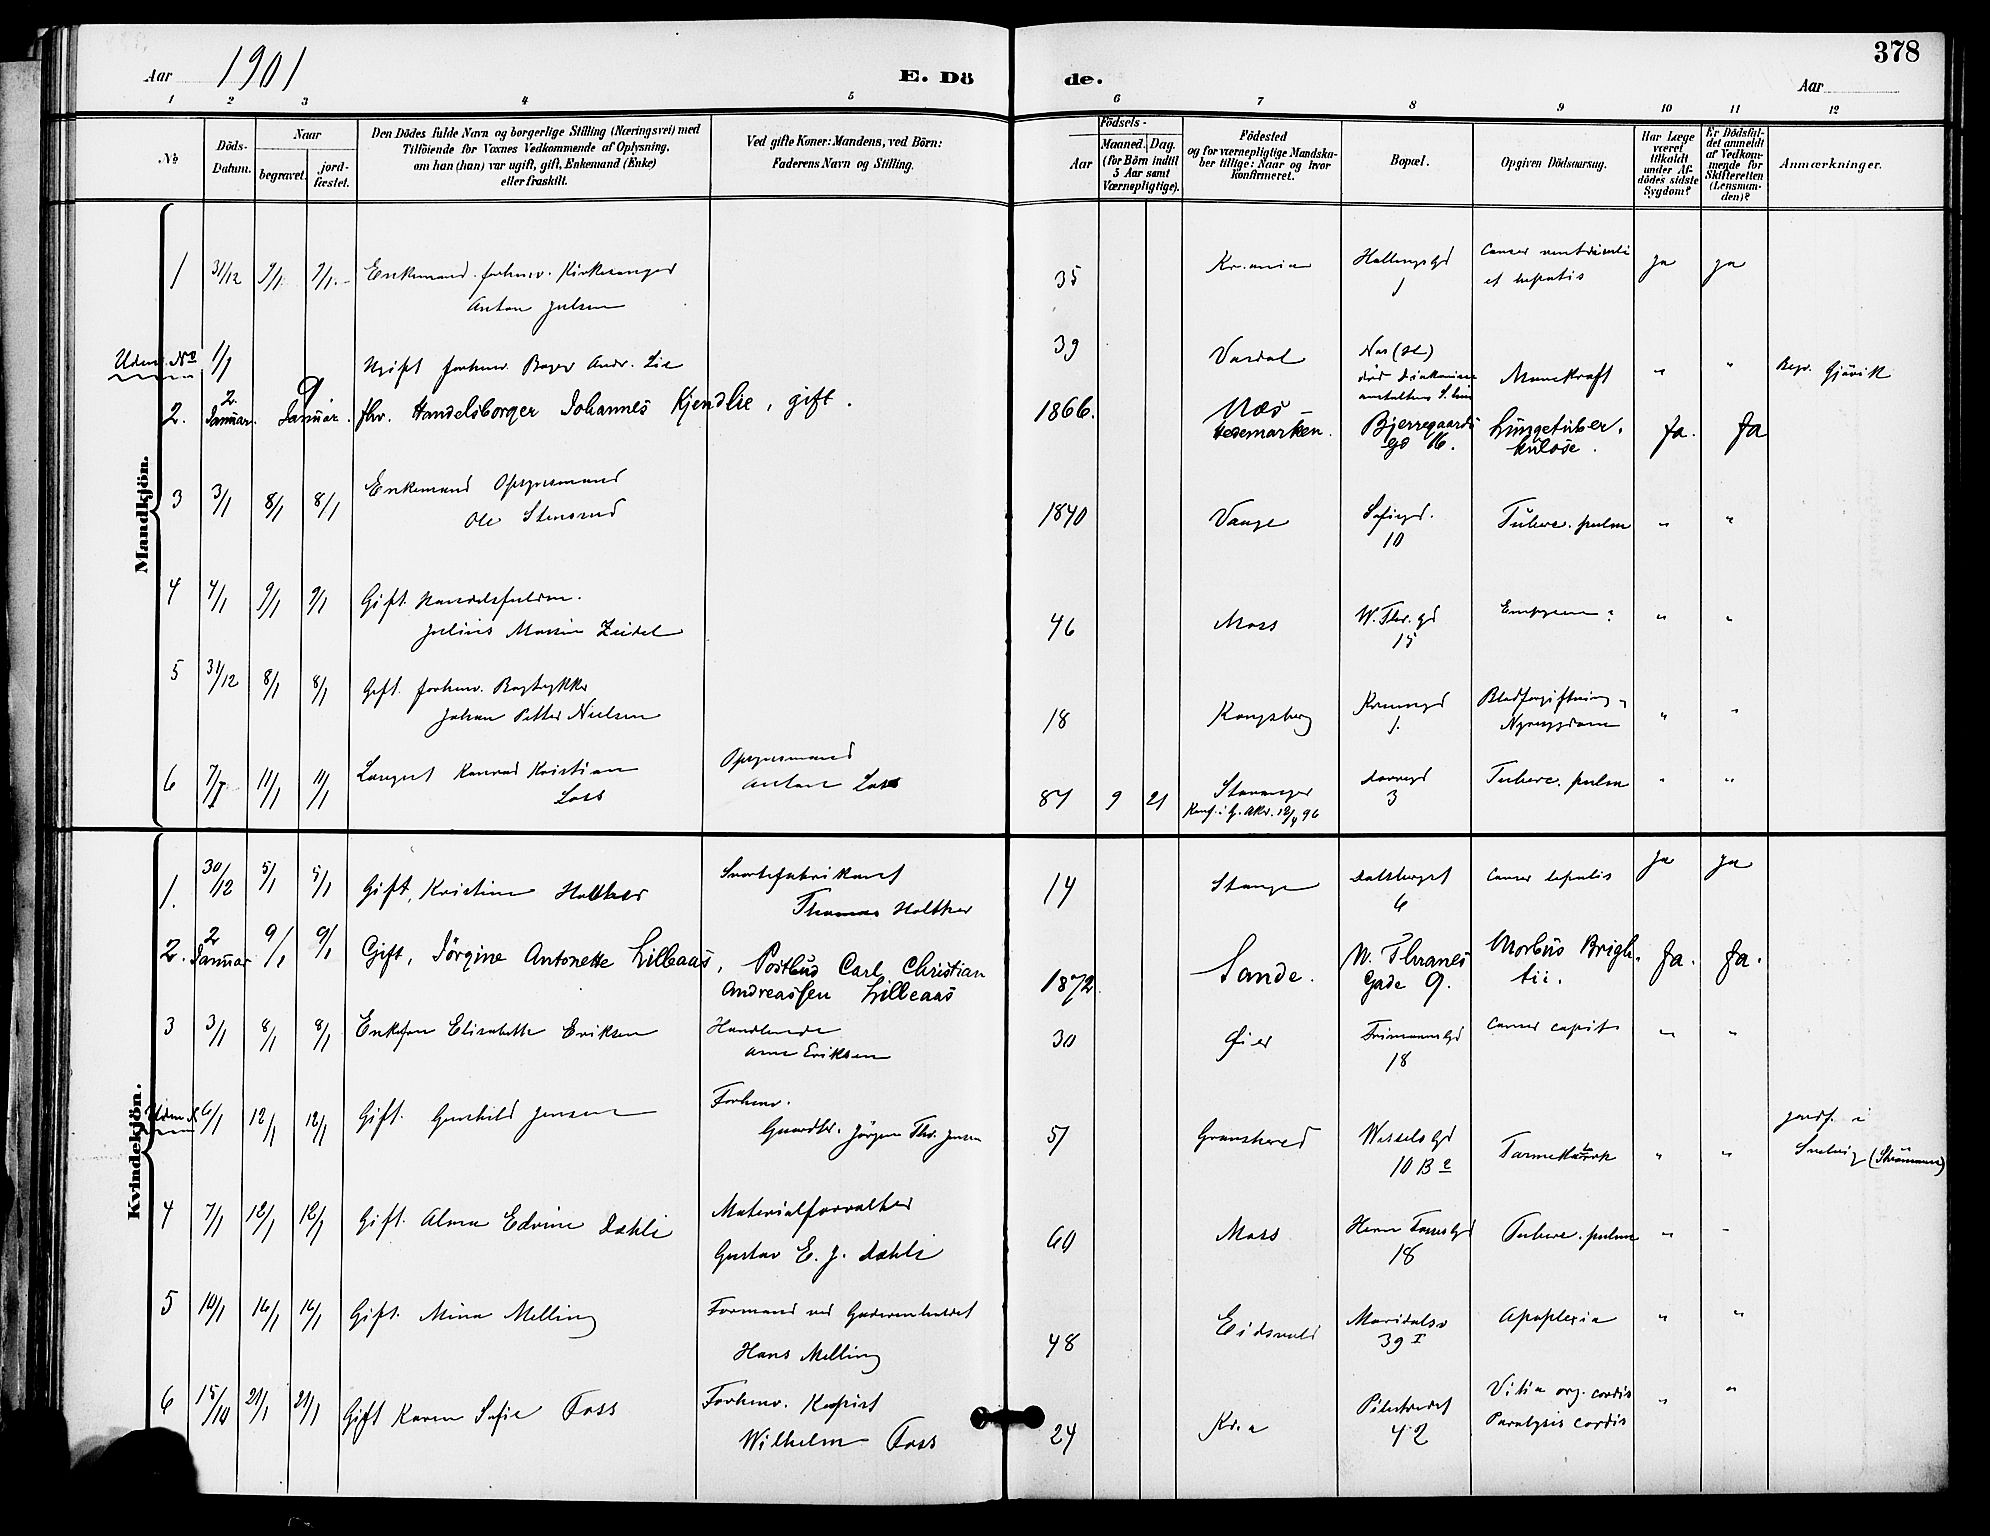 378
Aar 1901
E. Dö
de.
Aar
1 2 3 4 5 6 7 8 9 10 11 12
No
Döds-Datum.
Naar
begravet.
jord-fæstet.
Den Dödes fulde Navn og borgerlige Stilling (Næringsvei) med
Tilföiende for Voxnes Vedkommende af Oplysning,
om han (hun) var ugift, gift, Enkemand (Enke)
eller fraskilt.
Ved gifte Koner: Mandens, ved Börn:
Faderens Navn og Stilling.
Födsels-
Aar
Maaned. Dag.
(for Börn indtil
5 Aar samt
Værnepligtige).
Födested
og for værnepligtige Mandska-
ber tillige: Naar og hvor
konfirmeret.
Bopæl.
Opgiven Dödsaarsag.
Har Læge
været
tilkaldt
under Af-
dödes sidste
Sygdom?
Er Dödsfal-
det anmeldt
af Vedkom-
mende for
Skifteretten
(Lensman-
den)?
Anmærkninger.
Mandkjön.
1 31/12 9/1 9/1 Enkemand. forhenv. Kirkesanger
Anton Julsen
35 Kr.ania
1
et hepatis
ja ja
Uden No 1/1 Ugift forhenv. Bager Andr. Lie
39 Vardal
Begr. Gjövik
2. 2. Januar. 9 Januar. fhv. Handelsborger Johannes Kjendlie, gift.
1866. Næs – Hedemarken. Bjerregaards gd 16. Lungetuber-kulose. Ja. Ja
3 3/1 8/1 8/1 Enkemand Opsynsmand
Ole Stensrud
1840 Vang Sofiegd. 10 Tuberc. pulm " "
4 4/1 9/1 9/1 Gift. Handelsfuldm.
Julius Zeidel
46 Moss W. Thr. gd 15 Empyem " "
5 31/12 8/1 8/1 Gift. forhenv. Bogtrykker
Johan Petter Nielsen
18 Kongsberg 1. Blodforgiftning
Nyresygdom " "
6 7/1 11/1 11/1 Konrad Kristian
Loss
Opsynsmand
Anton Loss
81 9 21 Stavanger
Konf. i G. Aker. 12/4 96
3 Tuberc. pulm " "
Kvindekjön.
1. 30/12 5/1 5/1 Gift, Kristine Holther
Thomas Holther
14 Stange Dalsberget 6 Cancer hepatis ja ja
2. 2 Januar 9/1 9/1 Gift, Jörgine Antonette Lilleaas,
Postbud Carl Christian
Andreassen Lilleaas
1872. Sande. M. Thranes Gade 9. Morbus Brigh-tii. Ja. Ja.
3 3/1 8/1 8/1 Enkefru Elisabeth Eriksen
Handlende
Arne Eriksen
30 Öier Frimannsgd 18 Cancer capit. " "
Uden N. 6/1 12/1 12/1 Gift. Gunhild Jensen
Forhenv.
Gaardbr. Jörgen Thr. Jensen
51 Gransherred Wesselsgd 10 B Tarmekatarrh " "
jordf. i
Svelvig (Strömmen)
4 7/1 12/1 12/1 Gift. Alma Edvine Dæhli
Materialforvalter
Gustav E. J. Dæhli
60 Moss Herm Fossgd 18 Tuberc. pulm " "
5 10/1 16/1 16/1 Gift. Mina Melling
Formand ved Gaderenholdet
Hans Melling
48 Eidsvold Maridalsv 39 I Apoplexia " "
6 15/10 21/1 21/1 Gift Karen Sofie Foss
Forhenv. Kopist
Wilhelm Foss
24 Kr.a Pilestredet 42 Vitia org. cordis
Paralysis cordis " "